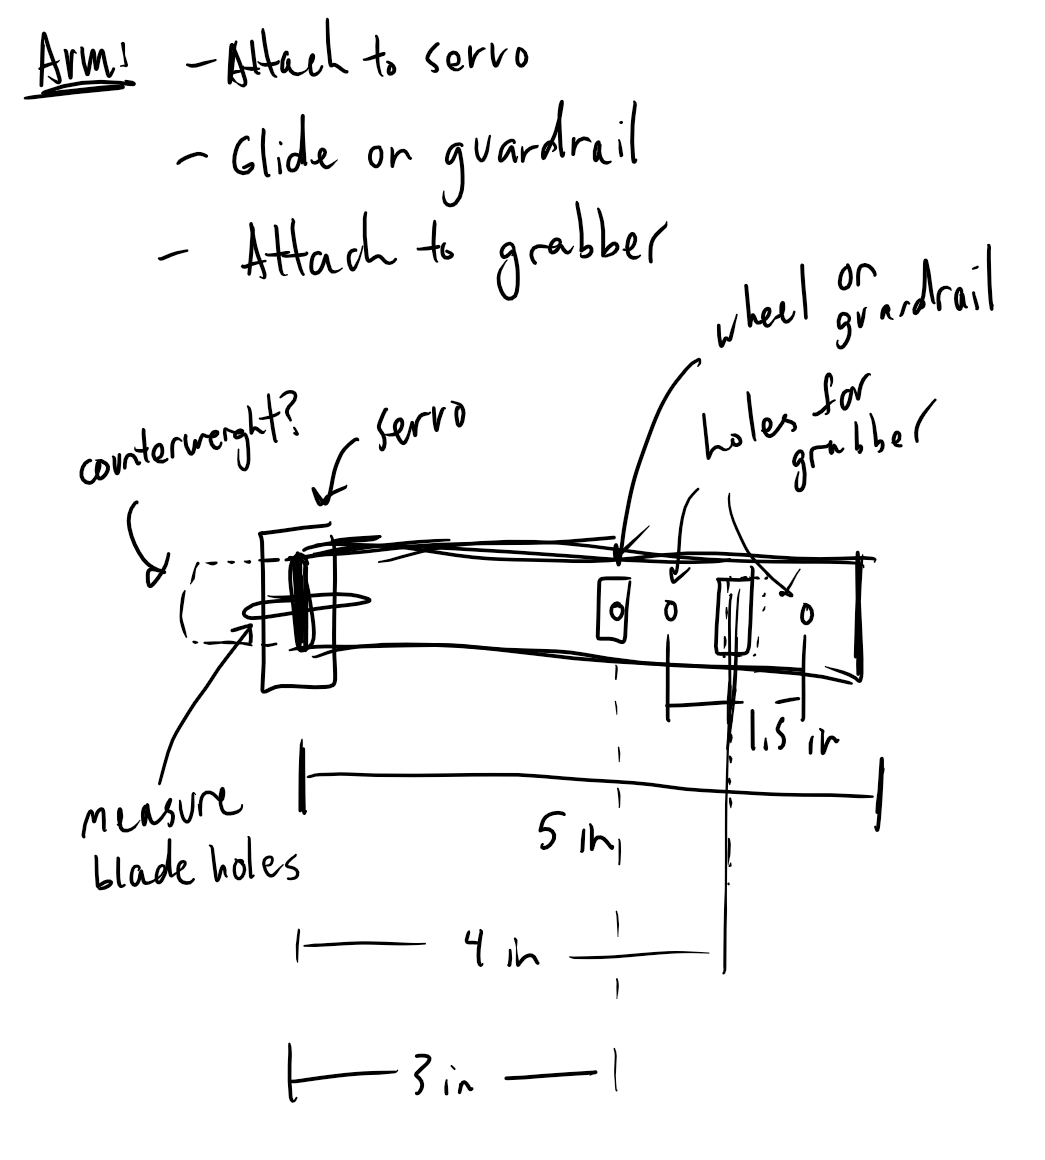 Arm: - Attach to servo
- Glide on guardrail
- Attach to grabber
wheel on
guardrail
holes for
grabber
servo
counterweight?
1.5 in
measure
blade holes
5 in
4 in
3 in